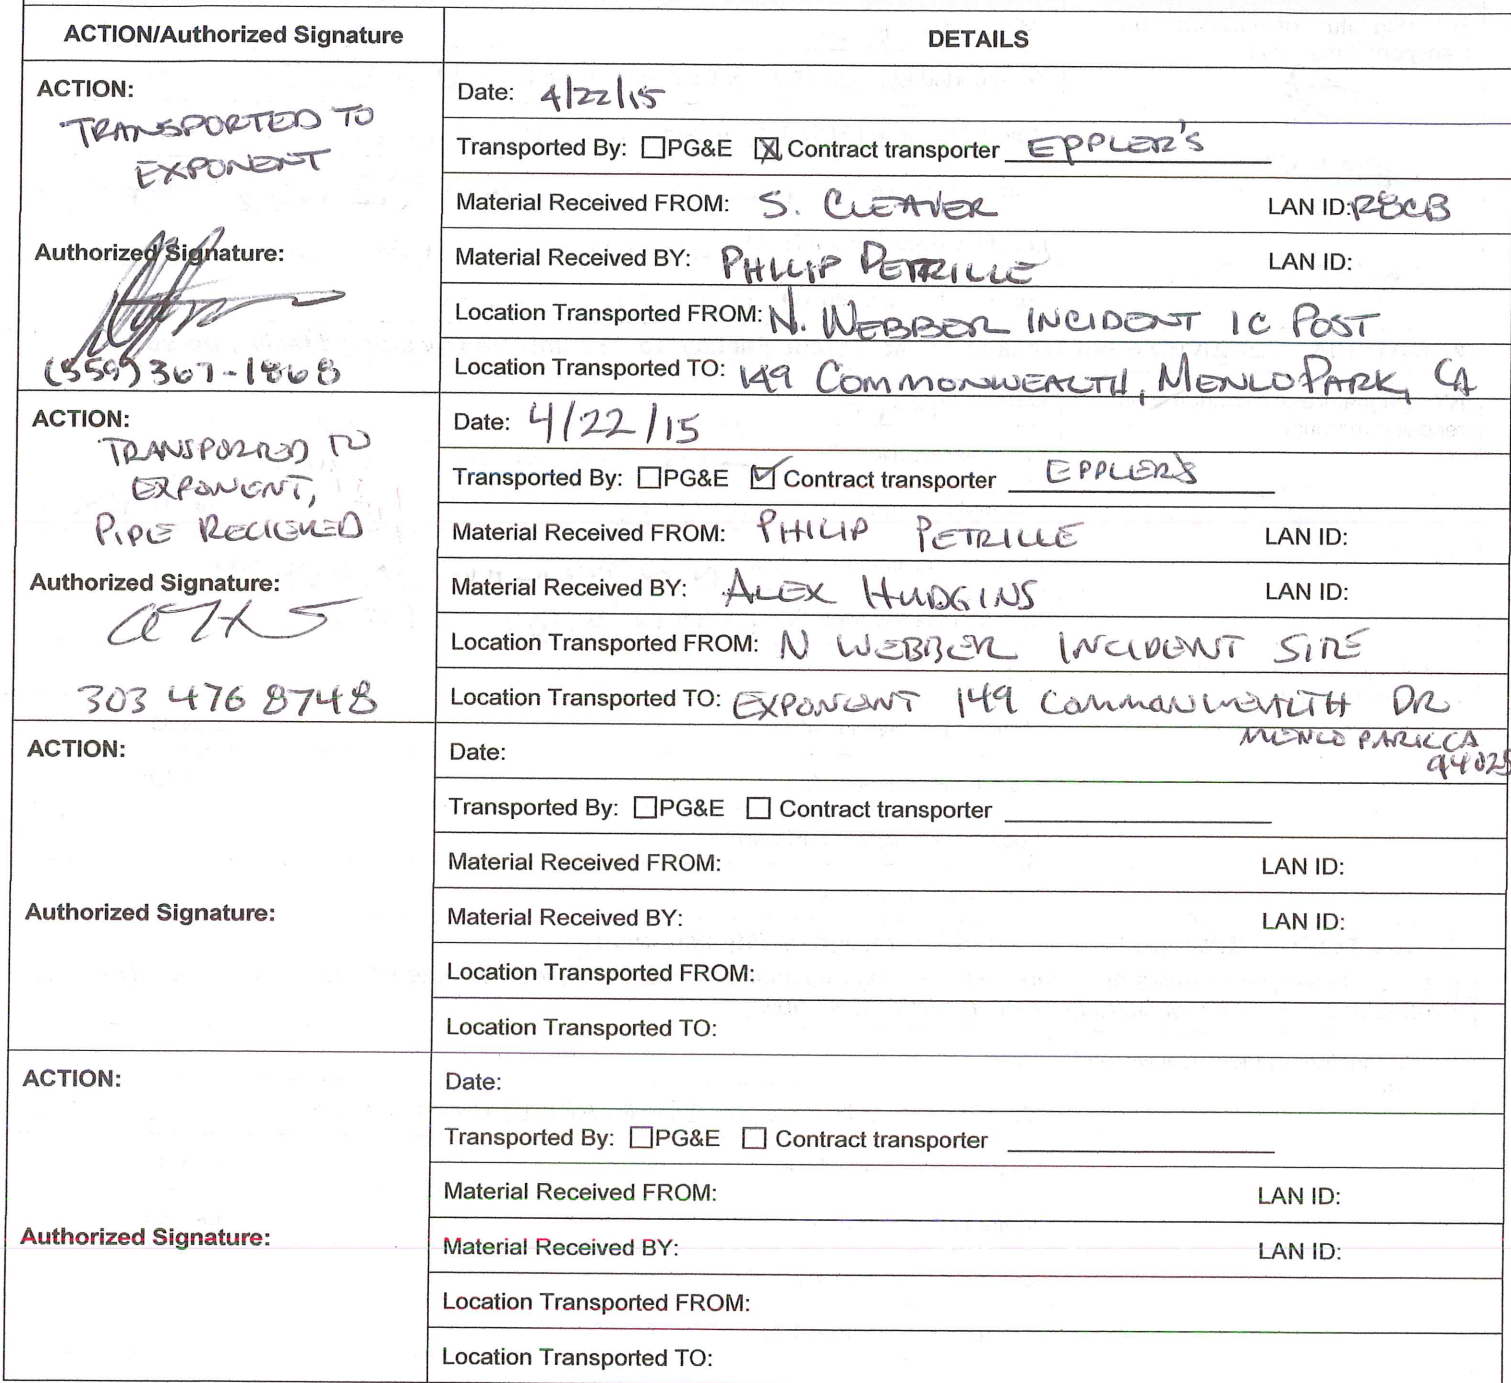 ACTION/Authorized Signature DETAILS
ACTION:
TRANSPORTED TO
EXPONENT
Authorized Signature:
(559) 367-1868
Date: 4/22/15
Transported By: ☐PG&E ☒ Contract transporter EPPLER'S
Material Received FROM: S. CLEAVER LAN ID: R8CB
Material Received BY: PHILIP PETRILLE LAN ID:
Location Transported FROM: N. WEBBER INCIDENT IC POST
Location Transported TO: 149 COMMONWEALTH, MENLO PARK, CA
ACTION:
TRANSPORRED TO
EXPONENT,
PIPE RECIEVED
Authorized Signature:
303 476 8748
Date: 4/22/15
Transported By: ☐PG&E ☑ Contract transporter EPPLERS
Material Received FROM: PHILIP PETRILLE LAN ID:
Material Received BY: ALEX HUDGINS LAN ID:
Location Transported FROM: N WEBBER INCIDENT SITE
Location Transported TO: EXPONENT 149 COMMONWEALTH DR
MENLO PARK CA
94025
ACTION:
Authorized Signature:
Date:
Transported By: ☐PG&E ☐ Contract transporter
Material Received FROM: LAN ID:
Material Received BY: LAN ID:
Location Transported FROM:
Location Transported TO:
ACTION:
Authorized Signature:
Date:
Transported By: ☐PG&E ☐ Contract transporter
Material Received FROM: LAN ID:
Material Received BY: LAN ID:
Location Transported FROM:
Location Transported TO: